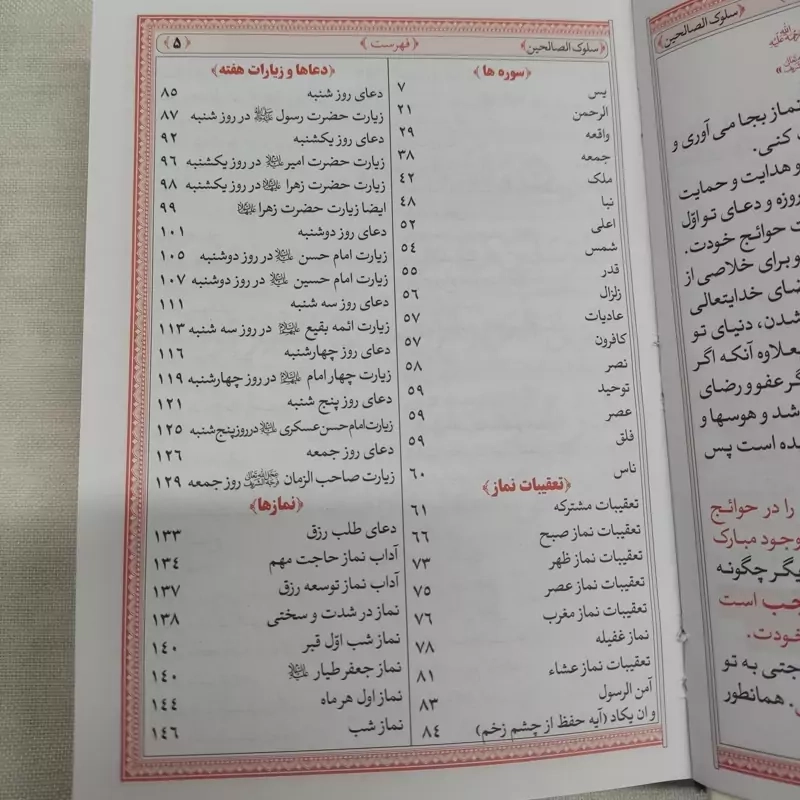 سلوک الصالحین
فهرست
۵
سوره ها
یس ۷
الرحمن ۲۱
واقعه ۲۹
جمعه ۳۸
ملک ۴۲
نبا ۴۸
اعلی ۵۲
شمس ۵۴
قدر ۵۵
زلزال ۵۶
عادیات ۵۷
کافرون ۵۷
نصر ۵۸
توحید ۵۹
عصر ۵۹
فلق ۵۹
ناس ۶۰
تعقیبات نماز
تعقیبات مشترکه ۶۱
تعقیبات نماز صبح ۶۶
تعقیبات نماز ظهر ۷۳
تعقیبات نماز عصر ۷۵
تعقیبات نماز مغرب ۷۶
نماز غفیله ۷۸
تعقیبات نماز عشاء ۸۱
آمن الرسول ۸۳
و ان یکاد (آیه حفظ از چشم زخم) ۸۴
دعاها و زیارات هفته
دعای روز شنبه ۸۵
زیارت حضرت رسول ﷺ در روز شنبه ۸۷
دعای روز یکشنبه ۹۲
زیارت حضرت امیر در روز یکشنبه ۹۶
زیارت حضرت زهرا در روز یکشنبه ۹۸
ایضا زیارت حضرت زهرا ۹۹
دعای روز دوشنبه ۱۰۱
زیارت امام حسن در روز دوشنبه ۱۰۵
زیارت امام حسین در روز دوشنبه ۱۰۷
دعای روز سه شنبه ۱۱۱
زیارت ائمه بقیع در روز سه شنبه ۱۱۳
دعای روز چهارشنبه ۱۱۶
زیارت چهار امام در روز چهارشنبه ۱۱۹
دعای روز پنج شنبه ۱۲۱
زیارت امام حسن عسکری در روز پنج شنبه ۱۲۵
دعای روز جمعه ۱۲۶
زیارت صاحب الزمان روز جمعه ۱۲۹
نمازها
دعای طلب رزق ۱۳۳
آداب نماز حاجت مهم ۱۳۴
آداب نماز توسعه رزق ۱۳۷
نماز در شدت و سختی ۱۳۸
نماز شب اوّل قبر ۱۴۰
نماز جعفر طیار ۱۴۰
نماز اول هر ماه ۱۴۴
نماز شب ۱۴۶
سلوک الصالحین
نماز بجا می آوری و
کنی.
و هدایت و حمایت
روزه و دعای تو اوّل
حوائج خودت.
و برای خلاصی از
خدایتعالی
شدن، دنیای تو
بعلاوه آنکه اگر
گر عفو و رضای
شد و هوسها و
ده است پس
را در حوائج
وجود مبارک
یگر چگونه
حب است
خودت.
جتی به تو
همانطور